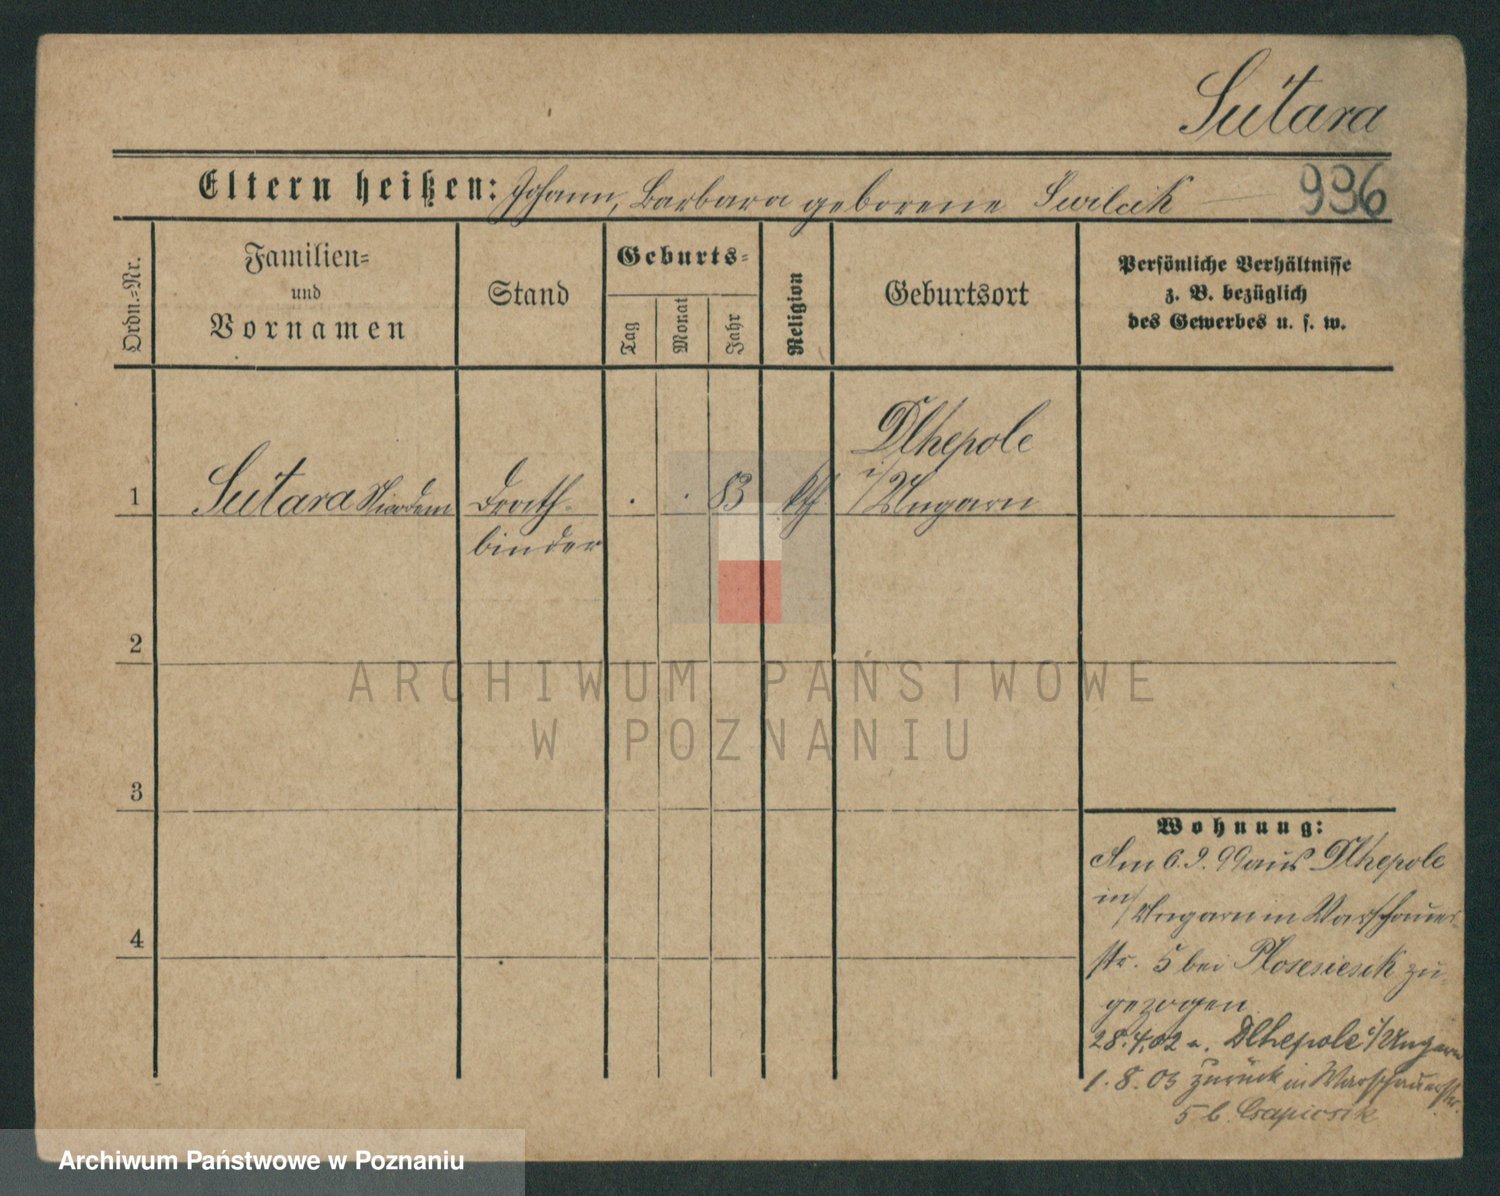 Sutara
Eltern heißen: Johann, Barbara geborene
996
Ordn.=Nr.
Familien=
und
Vornamen
Stand
Geburts=
Tag
Monat
Jahr
Religion
Geburtsort
Persönliche Verhältnisse
z. B. bezüglich
des Gewerbes u. s. w.
1
Sutara Nicodem
Drath-
binder
. . 83
kth
Dlhepole
i/Ungarn
2
3
4
Wohnung:
Am 6.9.99 aus Dlhepole
in/Ungarn in Warschauer-
str. 5 bei zu-
gezogen
28.4.02 a. Dlhepole i/Ungarn
1.8.03 zurück in Warschauerstr.
5 b.
ARCHIWUM PAŃSTWOWE
W POZNANIU
Archiwum Państwowe w Poznaniu